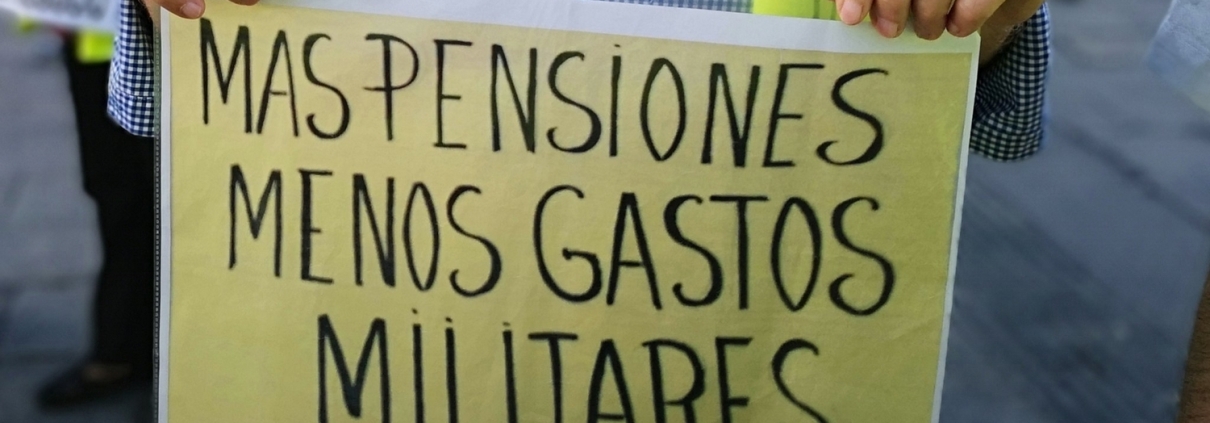 MAS PENSIONES
MENOS GASTOS
MILITARES